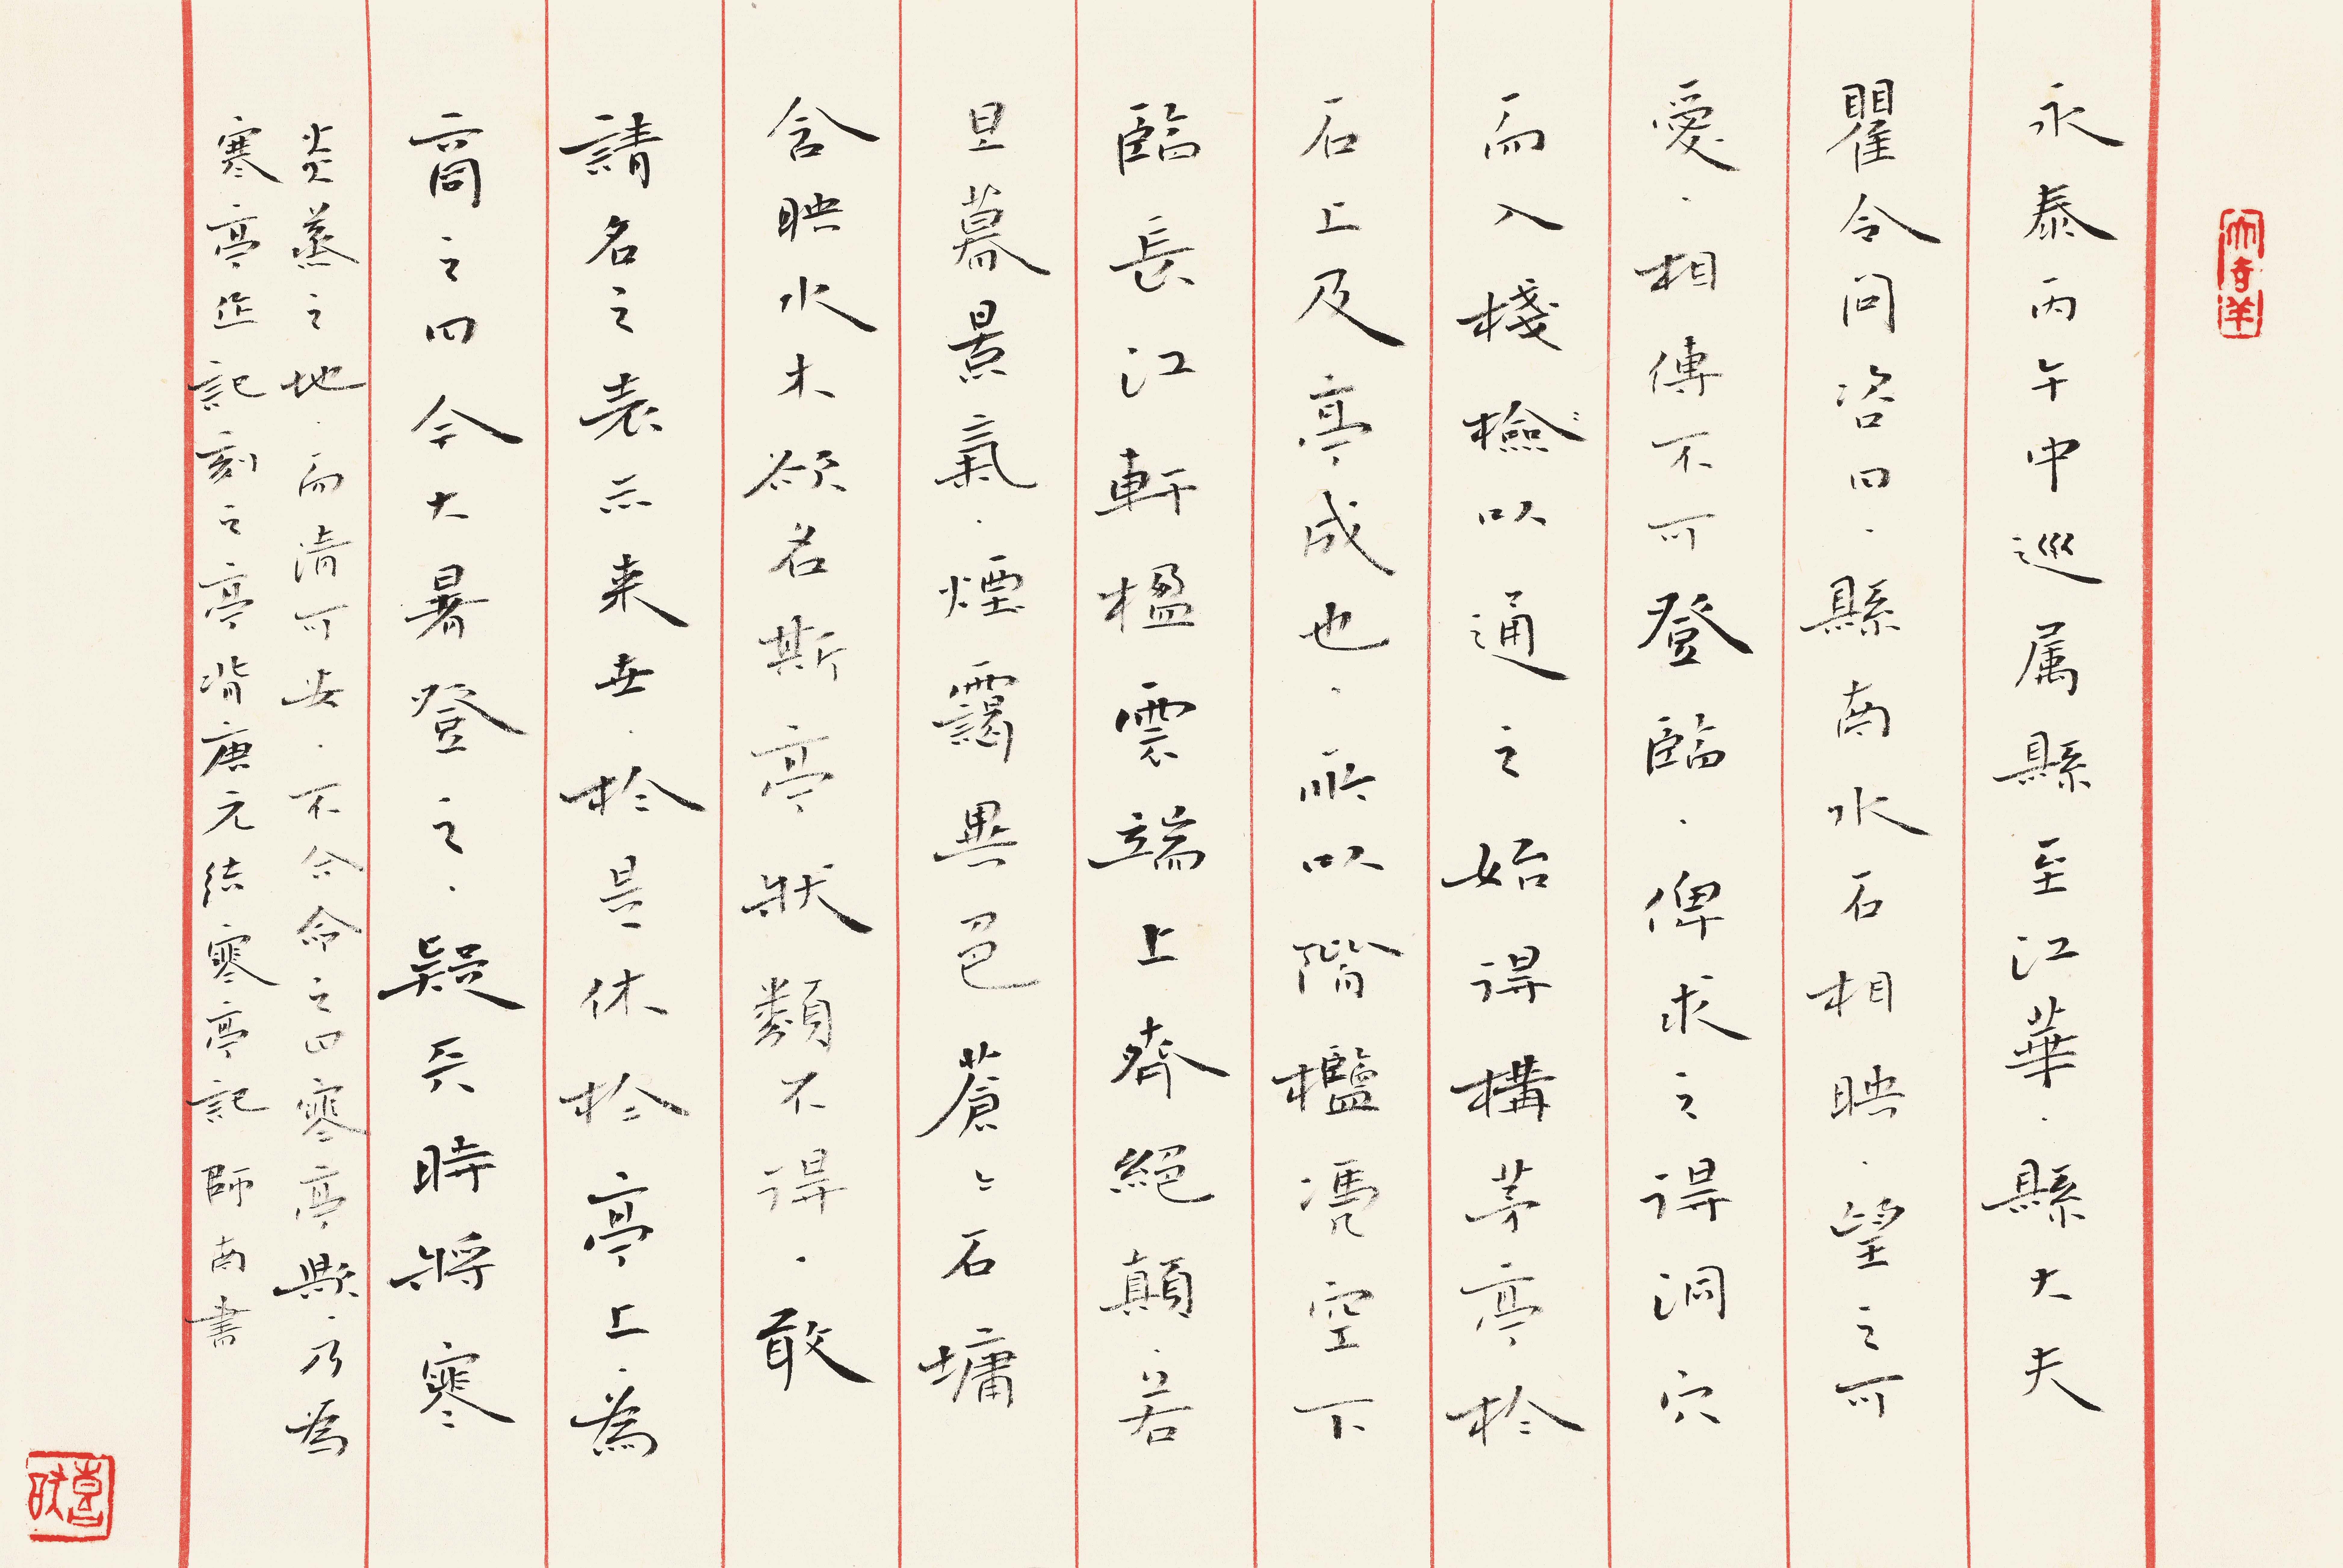 永泰丙午中巡属縣至江華．縣大夫
瞿令問咨曰．縣南水石相映．望之可
愛．相傳不可登臨．俾求之得洞穴
而入棧檢以通之始得構茅亭於
石上及亭成也．所以階檻憑空下
臨長江軒楹雲端上齊絕顛．若
旦暮景氣．煙靄異色蒼〻石墉
含映水木欲名斯亭狀類不得．敢
請名之表示来世．於是休於亭上．為
商之曰今大暑登之．疑天時將寒
炎蒸之地．而清可安．不合命之曰寒亭歟．乃為
寒亭作記刻之亭背唐元結寒亭記 師南書